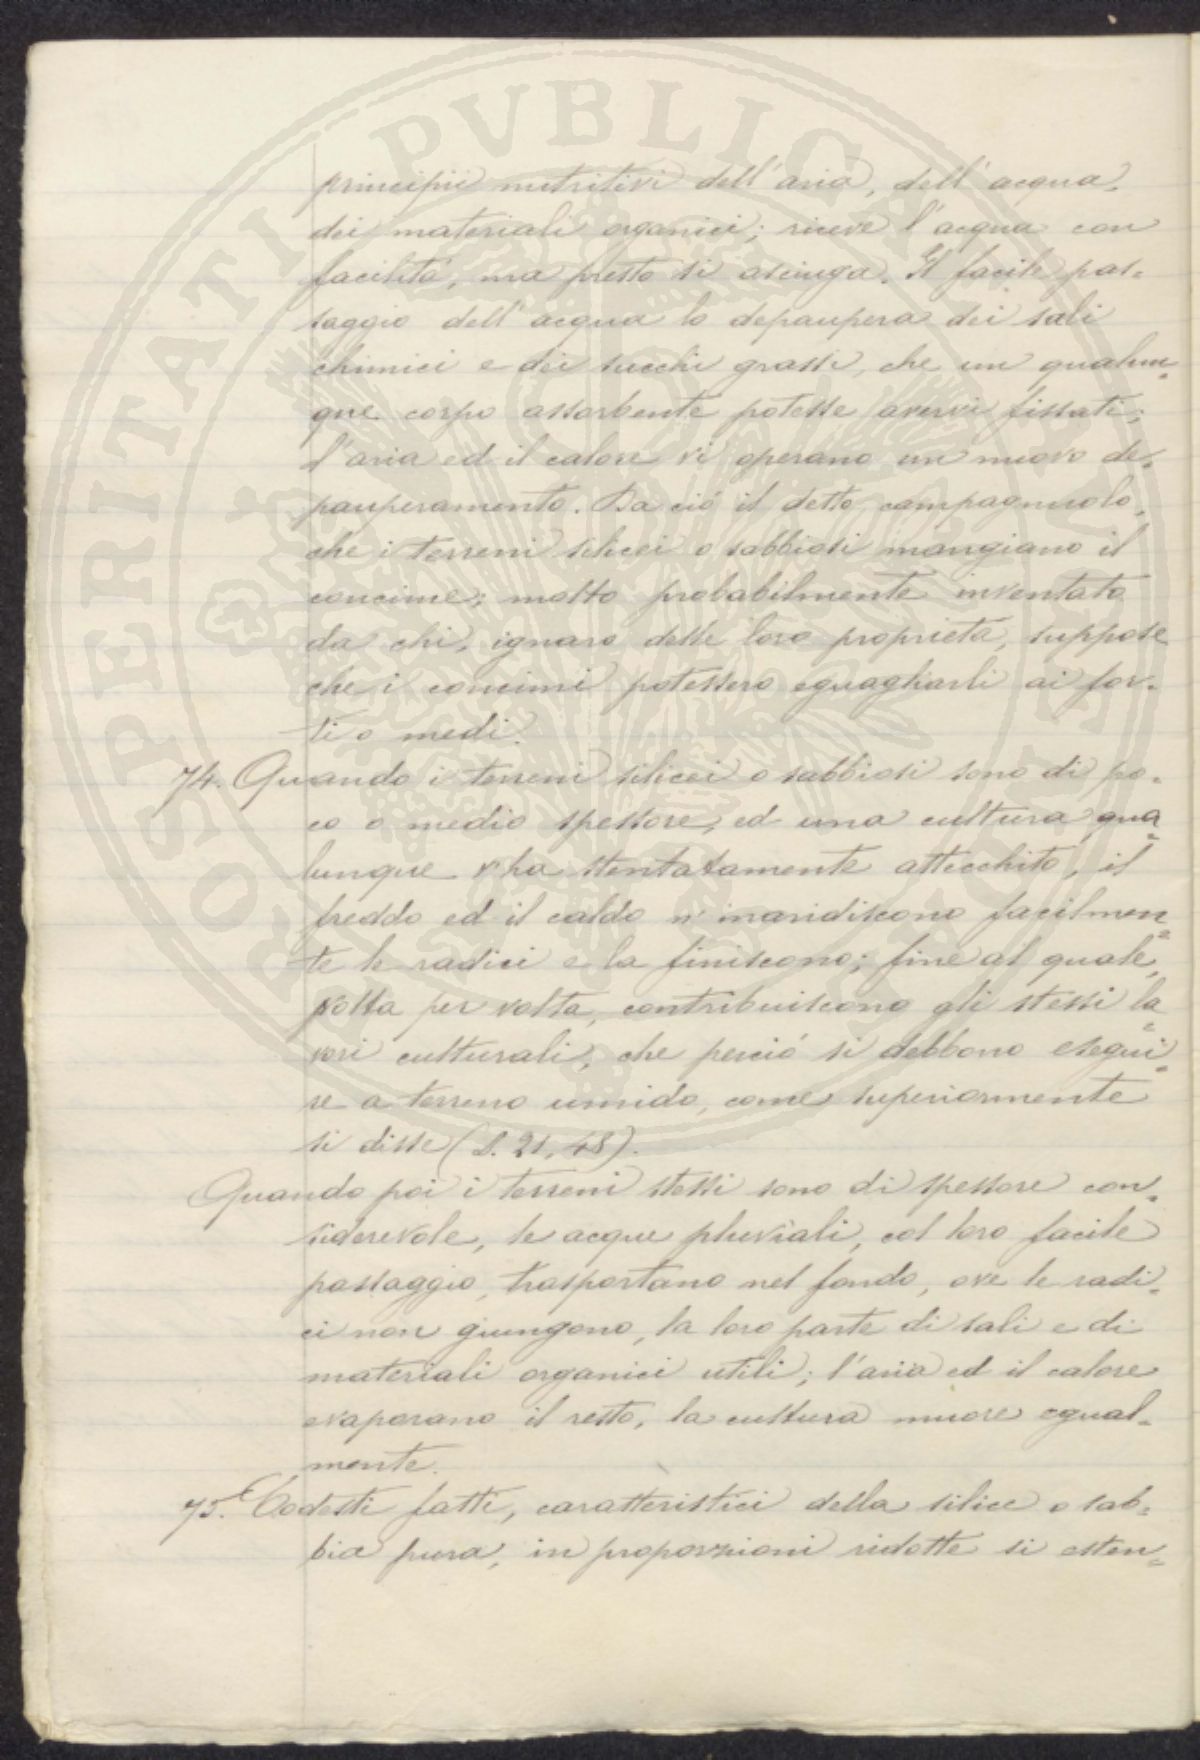 principii nutritivi dell'aria, dell'acqua,
dei materiali organici; riceve l'acqua con
facilità, ma presto si asciuga. Il facile pas-
saggio dell'acqua lo depaupera dei sali
chimici e dei succhi grassi, che un qualun-
que corpo assorbente potesse avervi fissati;
l'aria ed il calore vi operano un nuovo de-
pauperamento. Da ciò il detto campagnuolo,
che i terreni silicei o sabbiosi mangiano il
concime; molto probabilmente inventato
da chi, ignaro delle loro proprietà, suppose
che i concimi potessero eguagliarli ai for-
ti o medi.
74. Quando i terreni silicei o sabbiosi sono di po-
co o medio spessore, ed una cultura qua-
lunque v'ha stentatamente attecchito, il
freddo ed il caldo n'inaridiscono facilmen-
te le radici e la finiscono; fine al quale,
volta per volta, contribuiscono gli stessi la-
vori culturali, che perciò si debbono esegui-
re a terreno umido, come superiormente
si disse (S. 21, 48).
Quando poi i terreni stessi sono di spessore con-
siderevole, le acque pluviali, col loro facile
passaggio, trasportano nel fondo, ove le radi-
ci non giungono, la loro parte di sali e di
materiali organici utili; l'aria ed il calore
evaporano il resto, la cultura muore egual-
mente.
75. Codesti fatti, caratteristici della silice o sab-
bia pura, in proporzioni ridotte si esten-
PROSPERITATI PVBLICAE